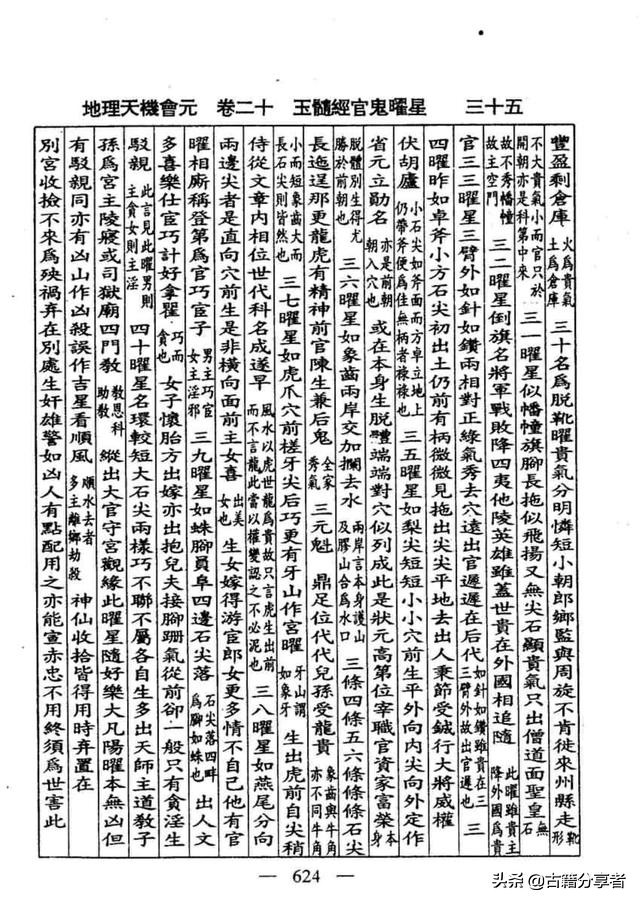 地理天機會元　卷二十　玉髓經官鬼曜星　三十五
豐盈剩倉庫火爲貴氣土爲倉庫三十名爲脫靴曜貴氣分明憐短小朝郎鄉監與周旋不肯徙來州縣走靴形
不大貴氣小而官只於開朝亦是科第中來三一曜星似幡幢旗腳長拖似飛揚又無尖石顯貴氣只出僧道面聖皇石無
故不秀幡幢故主空門三二曜星倒旗名將軍戰敗降四夷他陵英雄雖蓋世貴在外國相追隨此曜雖貴主降外國爲貴
官三三曜星三臂外如針如鑽兩相對正綠氣秀去穴遠出官遲遲在后代如針如鑽雖貴在三三臂外故出官遲也三
四曜昨如卓斧小方石尖初出土仍前有柄微微見拖出尖尖平地去出人秉節受鉞行大將威權
伏胡廬小石尖如斧面而方卓立地上仍帶斧便爲佳無柄者祿祿也三五曜星如梨尖短短小小穴前生平外向内尖向外定作
省元立勛名亦是前朝朝入穴也或在本身生脫體端端對穴似列成此是狀元高第位宰職官資家富榮本身
脫體別生得尤勝於前朝也三六曜星如象齒兩岸交加攔去水兩岸言本身護山及膠山合爲水口三條四條五六條條條石尖
長迤逞那更龍虎有精神前官陳生兼后鬼全家秀氣三元魁鼎足位代代兒孫受龍貴象齒與牛角亦不同牛角
小而短象齒大而長石尖則皆然也三七曜星如虎爪穴前槎牙尖后巧更有牙山作宮曜牙山謂如象牙生出虎前自尖稍
侍從文章内相位世代科名成遂早風水以虎世龍爲貴故只言虎生出前而不言龍此當以權變認之不必泥也三八曜星如燕尾分向
兩邊尖者是直向穴前生是非橫向面前主女喜出美女也生女嫁得游宦郎女更多情不自己他有官
曜相廝稱登第爲官巧宦子男主巧官女主淫邪三九曜星如蛛腳員阜四邊石尖落石尖落四畔爲腳如蛛也出人文
多喜樂仕宦巧計好拿玃巧而貪也女子懷胎方出嫁亦出抱兒夫接腳跚氣從前卻一般只有貪淫生
駁親此言見此曜男則主貪女則主淫四十曜星名環較短大石尖兩樣巧不聯不屬各自生多出天師主道教子
孫爲宮主陵寢或司獄廟四門教教恩科助敎縱出大官守宮觀緣此曜星隨好樂大凡陽曜本無凶但
有駁親同亦有凶山作凶殺誤作吉星看順風順水去者多主離鄉劫殺神仙收拾皆得用時弃置在
別宮收撿不來爲殃禍弃在別處生奸雄警如凶人有點配用之亦能宣赤忠不用終須爲世害此
— 624 —
头条 @古籍分享者